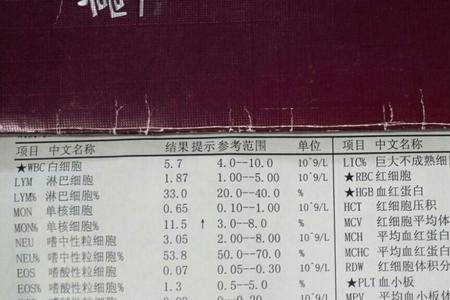 项目 中文名称 结果 提示 参考范围 单位 项目 中文名称
★WBC 白细胞 5.7 4.0--10.0 10^9/L LIC% 巨大不成熟细
LYM 淋巴细胞 1.87 1.00--5.00 10^9/L ★RBC 红细胞
LYM% 淋巴细胞% 33.0 20.0--40.0 % ★HGB 血红蛋白
MON 单核细胞 0.65 0.10--1.00 10^9/L HCT 红细胞压积
MON% 单核细胞% 11.5 ↑ 3.0--8.0 % MCV 红细胞平均体
NEU 嗜中性粒细胞 3.05 2.00--8.00 10^9/L MCH 平均血红蛋白
NEU% 嗜中性粒细胞% 53.8 50.0--70.0 % MCHC 平均血红蛋白
EOS 嗜酸性粒细胞 0.07 0.05--0.30 10^9/L RDW 红细胞体积分
EOS% 嗜酸性粒细胞% 1.3 0.5--5.0 % ★PLT 血小板
10^9/L MPV 平均血小板体